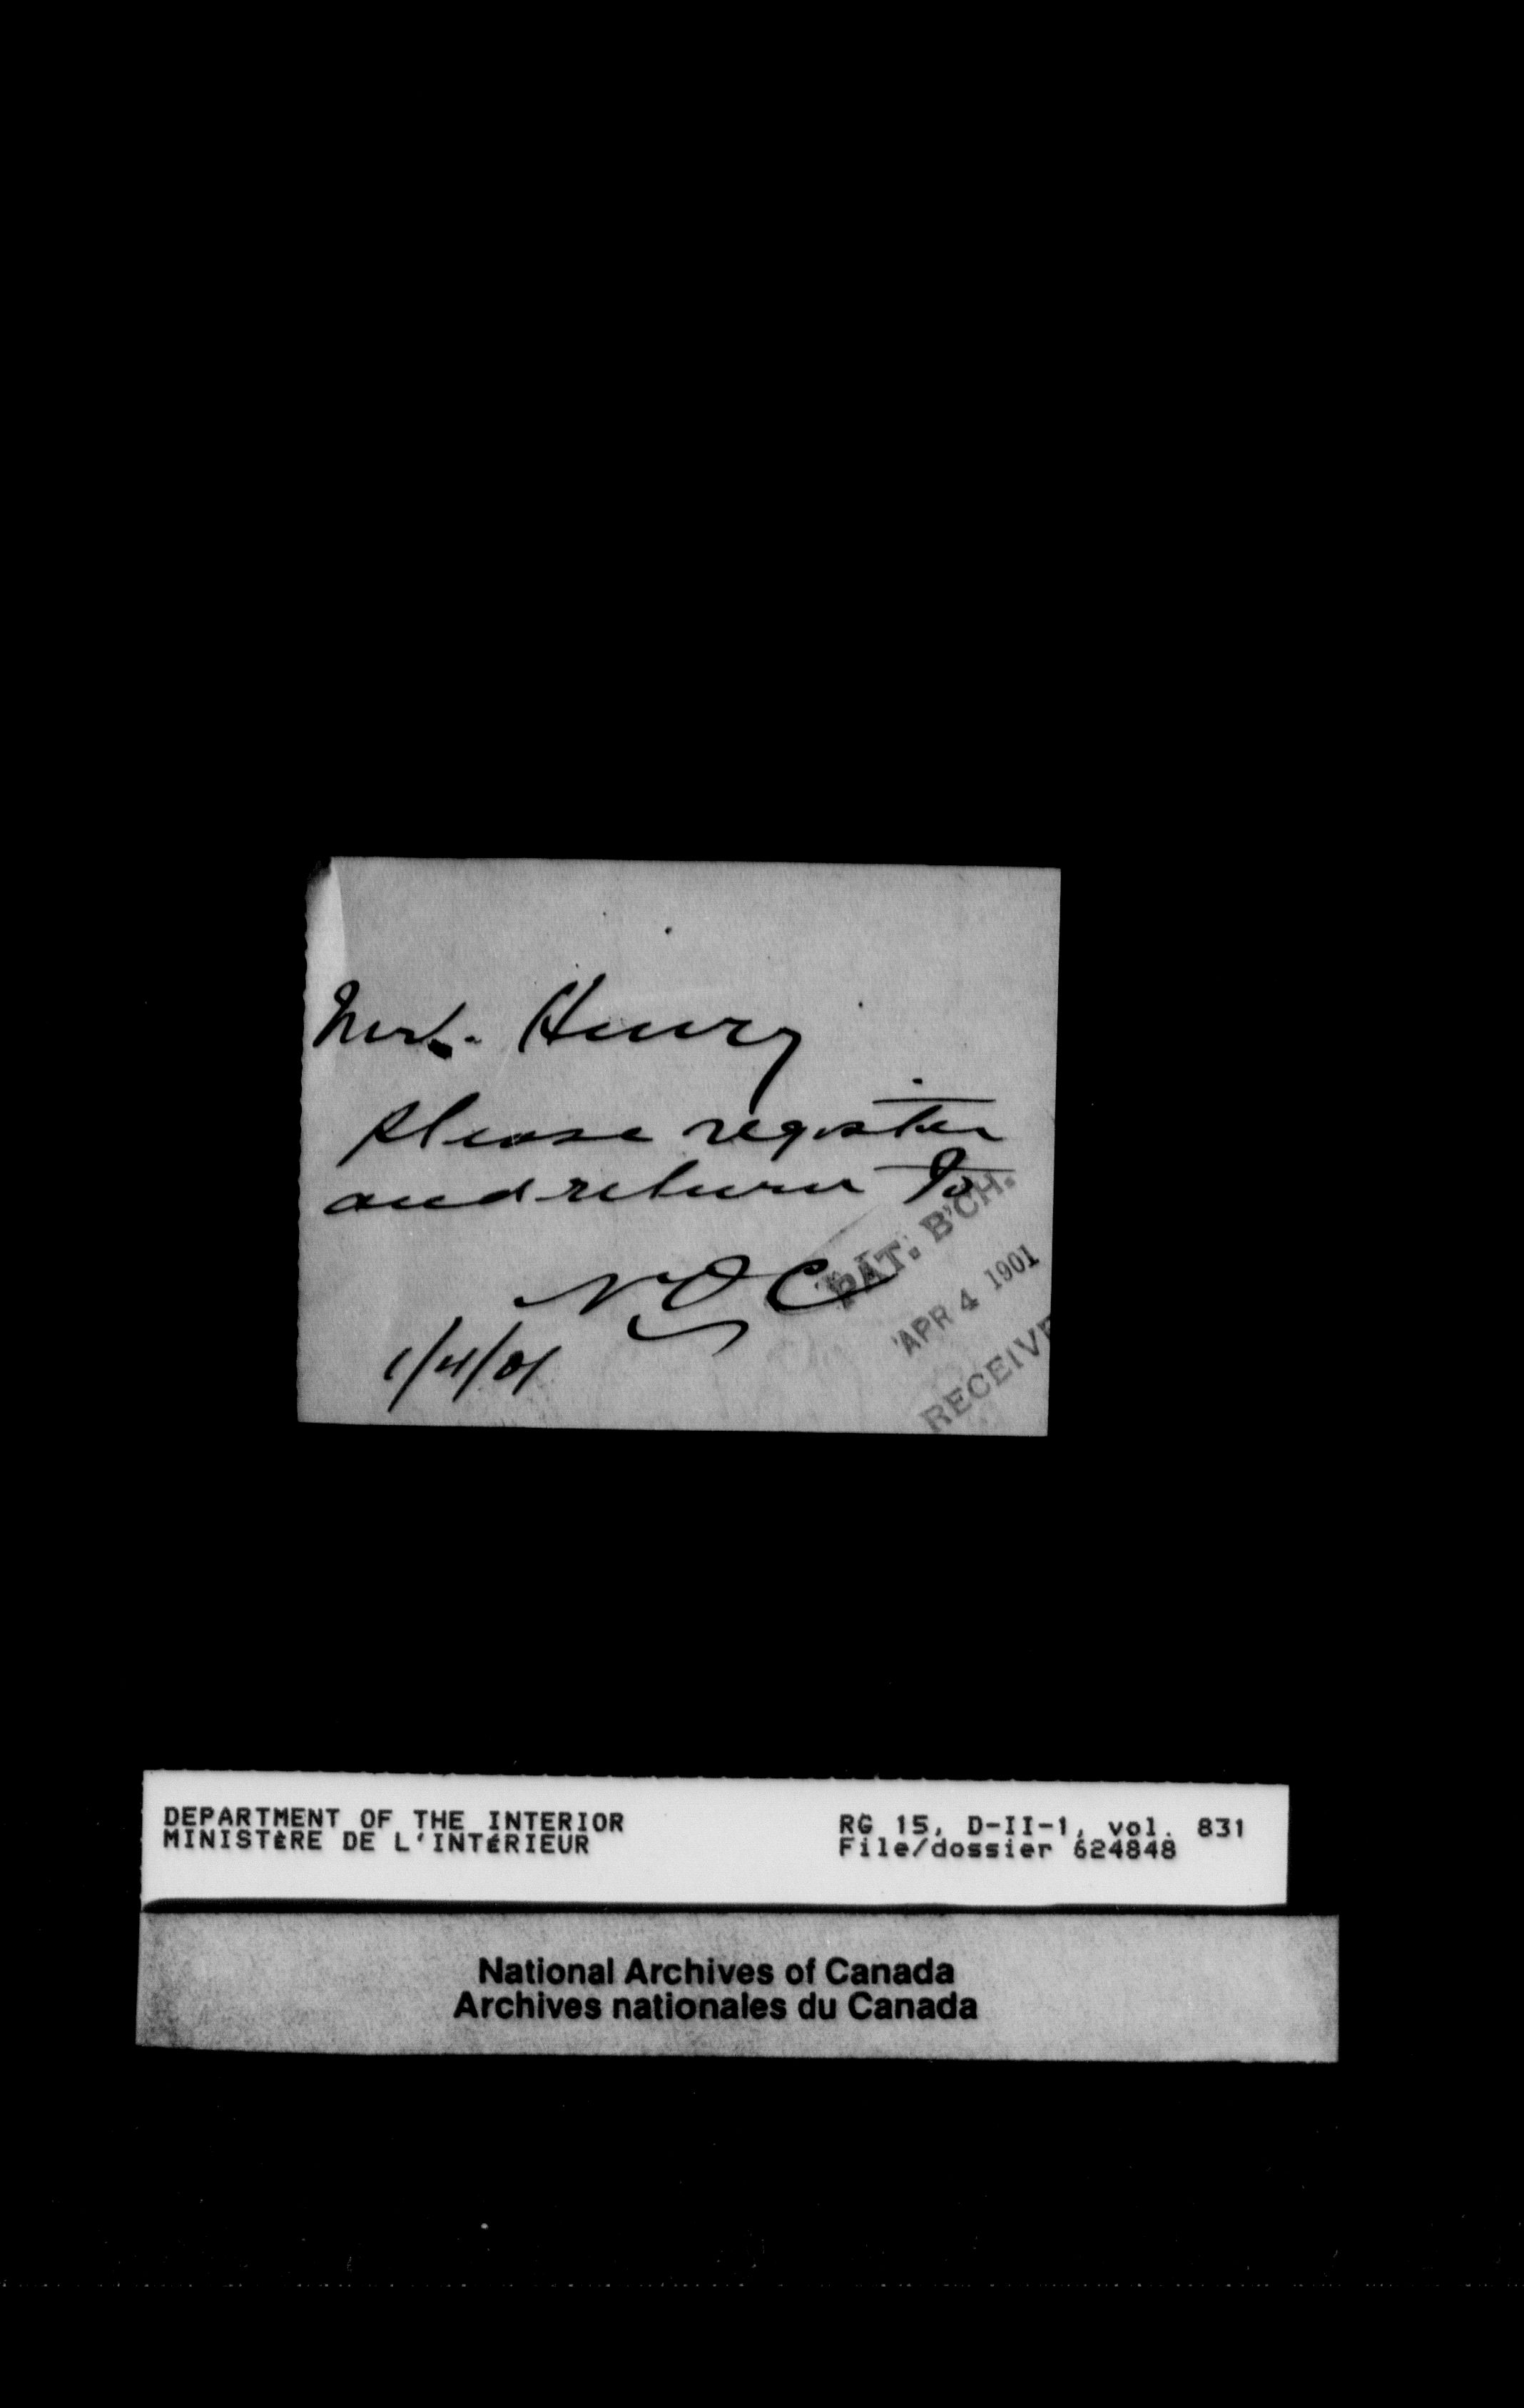 Henry
please register
and return to
N O C
1/4/01
PAT. B'CH.
APR 4 1901
RECEIVE
DEPARTMENT OF THE INTERIOR
MINISTÈRE DE L'INTÉRIEUR
RG 15, D-II-1, vol. 831
File/dossier 624848
National Archives of Canada
Archives nationales du Canada